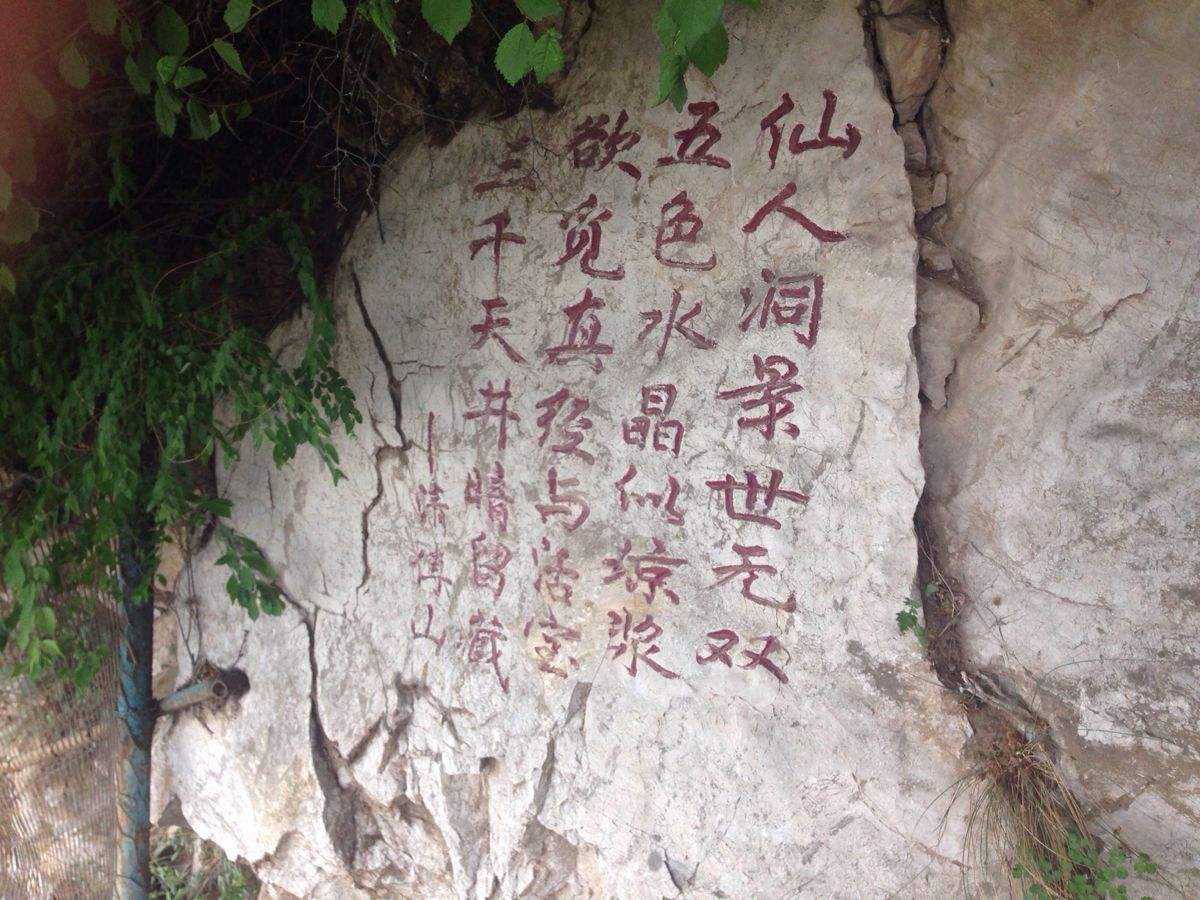 仙人洞景世无双
五色水晶似琼浆
欲觅真经与活宝
三千天井暗留藏
—清傅山